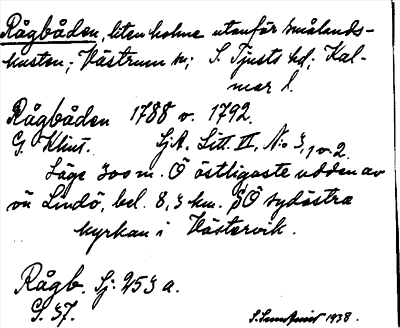 Rågbåden, liten holme utanför smålands-
kusten; Västrum sn; S. Tjusts hd; Kal-
mar l.
Rågbåden 1788 o. 1792.
G. Klint. Sj.A. Litt. II, No 3, 1 o. 2.
Läge 300 m. Ö östligaste udden av
ön Lindö, bel. 8,3 km. SÖ sydöstra
kyrkan i Västervik.
Rågb. Sj: 253 a.
G. 37.
1938.